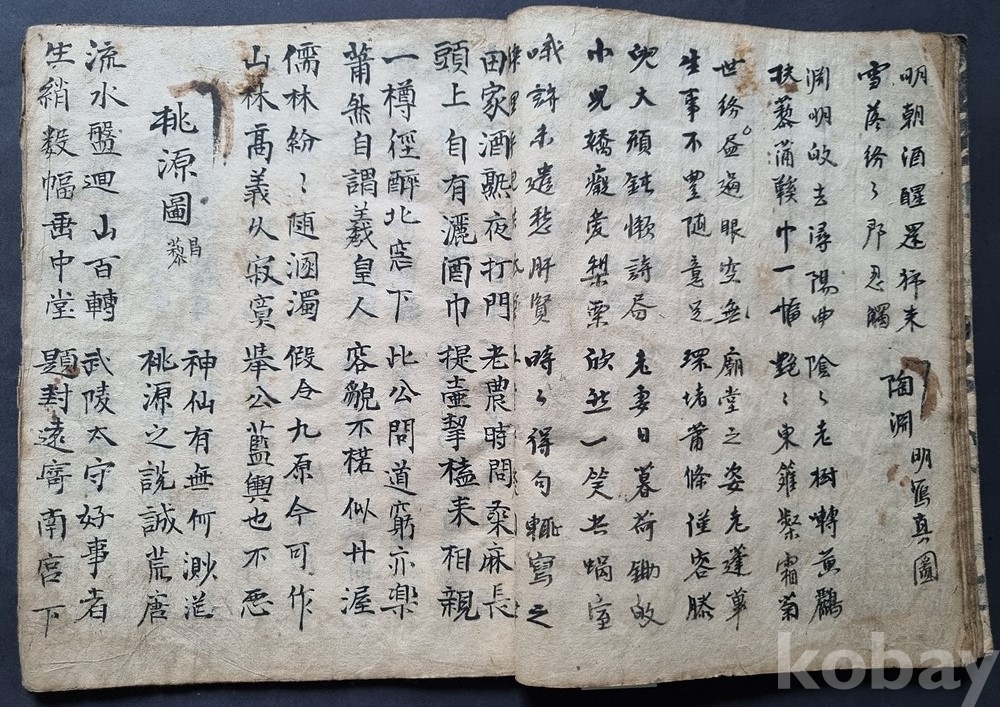 明朝酒醒還独来
雪落紛々那忍觸
陶淵明寫真圖
淵明皈去潯陽曲 陰々老樹囀黃鸝
扶藜蒲鞵巾一幅 艶々東籬粲霜菊
世紛盡過眼空無 廟堂之姿老蓬蓽
生事不豊随意足 環堵蕭條僅容膝
兒大頑鈍懶詩書 老妻日暮荷鋤皈
小兒嬌癡愛梨栗 欣然一笑共蝸室
哦詩未遣愁肝賢 時々得句輒寫之
田家酒熟夜打門 老農時問桑麻長
頭上自有灑酒巾 提壺挈榼来相親
一樽徑醉北窓下 此公問道窮亦樂
蕭然自謂羲皇人 容貌不楛似丹渥
儒林紛々随溷濁 假令九原今可作
山林高義久寂寞 舉公藍輿也不悪
桃源圖 昌藜
神仙有無何渺茫
桃源之說誠荒唐
流水盤迴山百轉 武陵太守好事者
生綃數幅垂中堂 題封遠寄南宮下
kobay